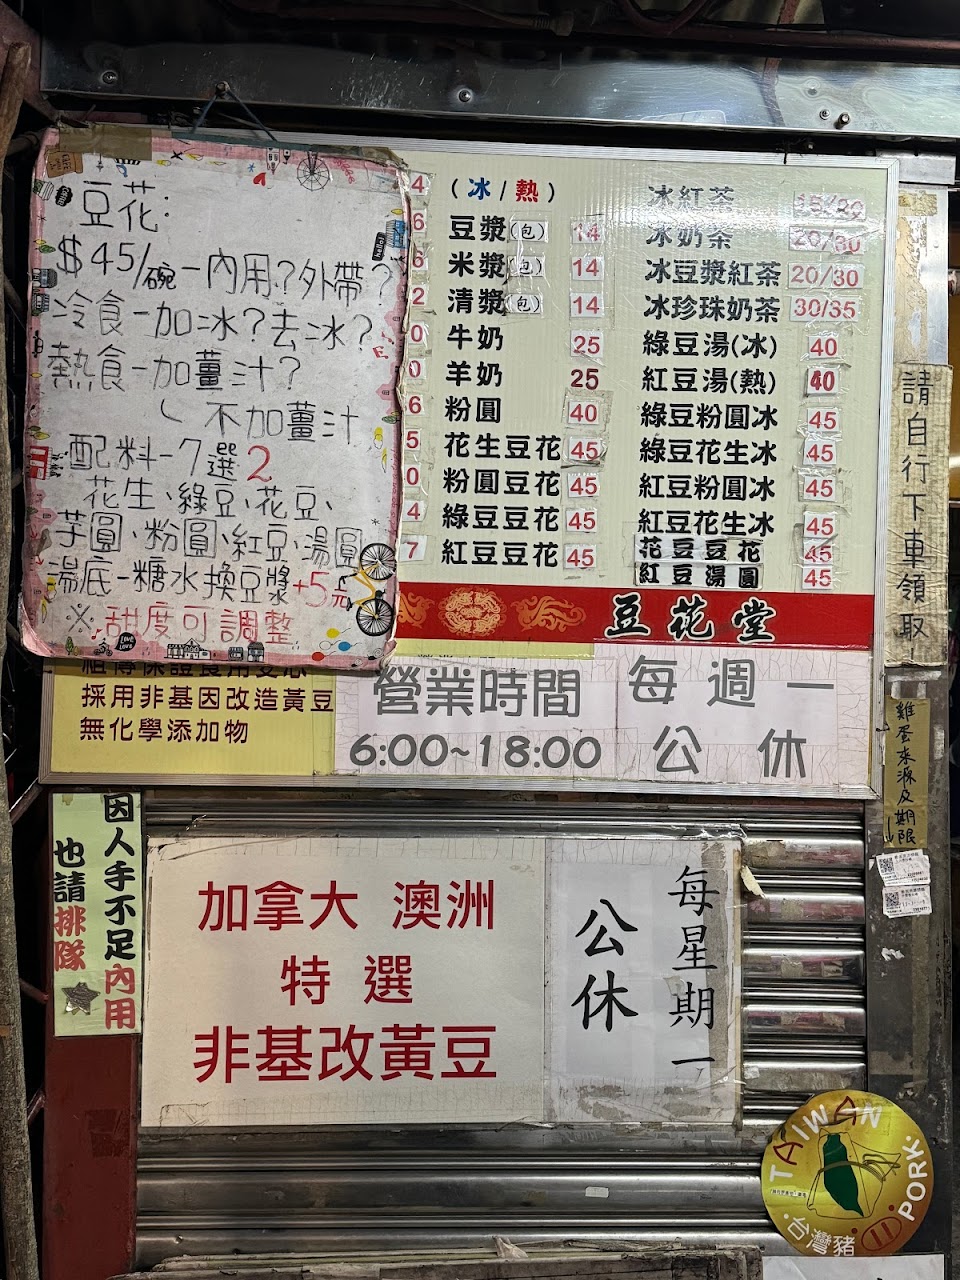 豆花:
$45/碗-內用?外帶?
冷食-加冰?去冰?
熱食-加薑汁?
不加薑汁
配料-7選2
花生、綠豆、花豆、
芋圓、粉圓、紅豆、湯圓
湯底-糖水換豆漿+5元
※甜度可調整
4
6
6
2
0
0
6
5
0
4
7
(冰/熱)
豆漿(包) 14
米漿(包) 14
清漿(包) 14
牛奶 25
羊奶 25
粉圓 40
花生豆花 45
粉圓豆花 45
綠豆豆花 45
紅豆豆花 45
冰紅茶 15/20
冰奶茶 20/30
冰豆漿紅茶 20/30
冰珍珠奶茶 30/35
綠豆湯(冰) 40
紅豆湯(熱) 40
綠豆粉圓冰 45
綠豆花生冰 45
紅豆粉圓冰 45
紅豆花生冰 45
花豆豆花 45
紅豆湯圓 45
豆花堂
採用非基因改造黃豆
無化學添加物
營業時間
6:00~18:00
每週一
公休
請自行下車領取
雞蛋來源及期限
因人手不足內用
也請排隊
加拿大 澳洲
特選
非基改黃豆
每星期一
公休
TAIWAN
PORK
台灣豬